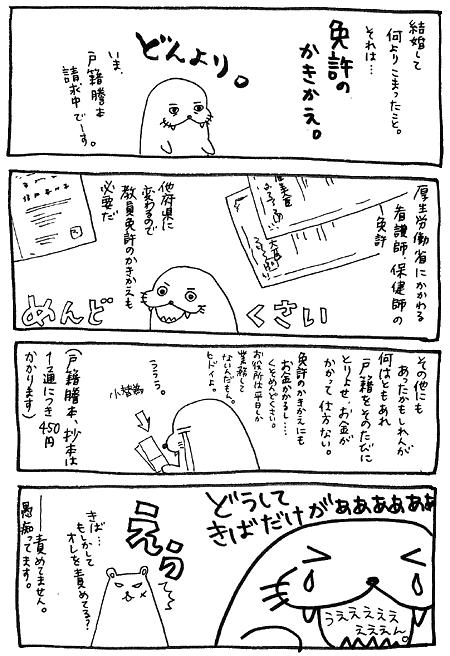 結婚して
何よりこまったこと。
それは…
免許の
かきかえ。
どんより。
いま、
戸籍謄本
請求中でーす。
厚生労働省にかかわる
看護師、保健師の
免許
他府県に
変わるので
教員免許のかきかえも
必要だ
めんど
くさい
その他にも
あったかもしれんが
何はともあれ
戸籍をそのたびに
とりよせ、お金が
かかって仕方ない。
免許のかきかえにも
お金かかるし…。
くそめんどくさい。
お役所は平日しか
業務して
ないんだもん。
ヒドイよ。
うううっ。
小替為
(戸籍謄本、抄本は
1通につき450円
かかります)
どうして
きばだけがぁぁぁぁぁぁ
うえええええ
えええん。
えっ
きば…
もしかして
オレを責めてる?
――責めてません。
愚痴ってます。